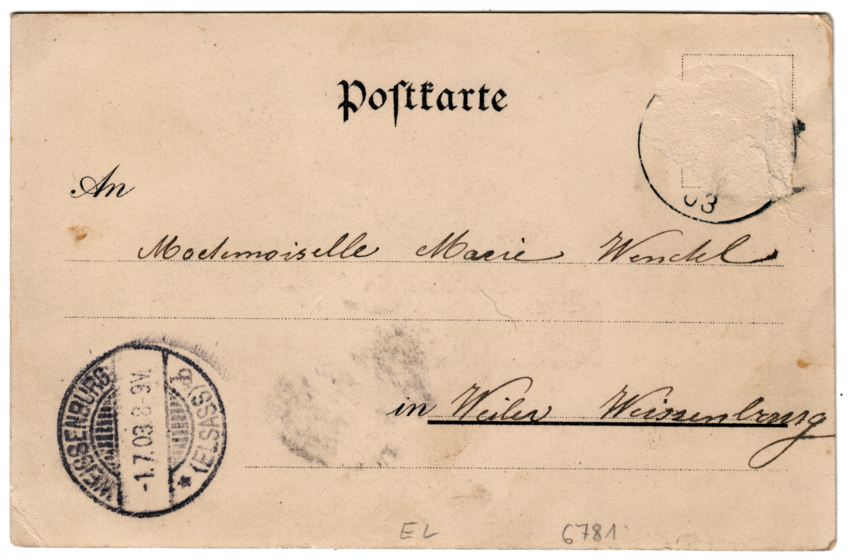 Postkarte
03
An
Mademoiselle Marie Wendel
in Weiler Weissenburg
WEISSENBURG
-1.7.03.8-9V.
* (ELSASS) b
EL 6781